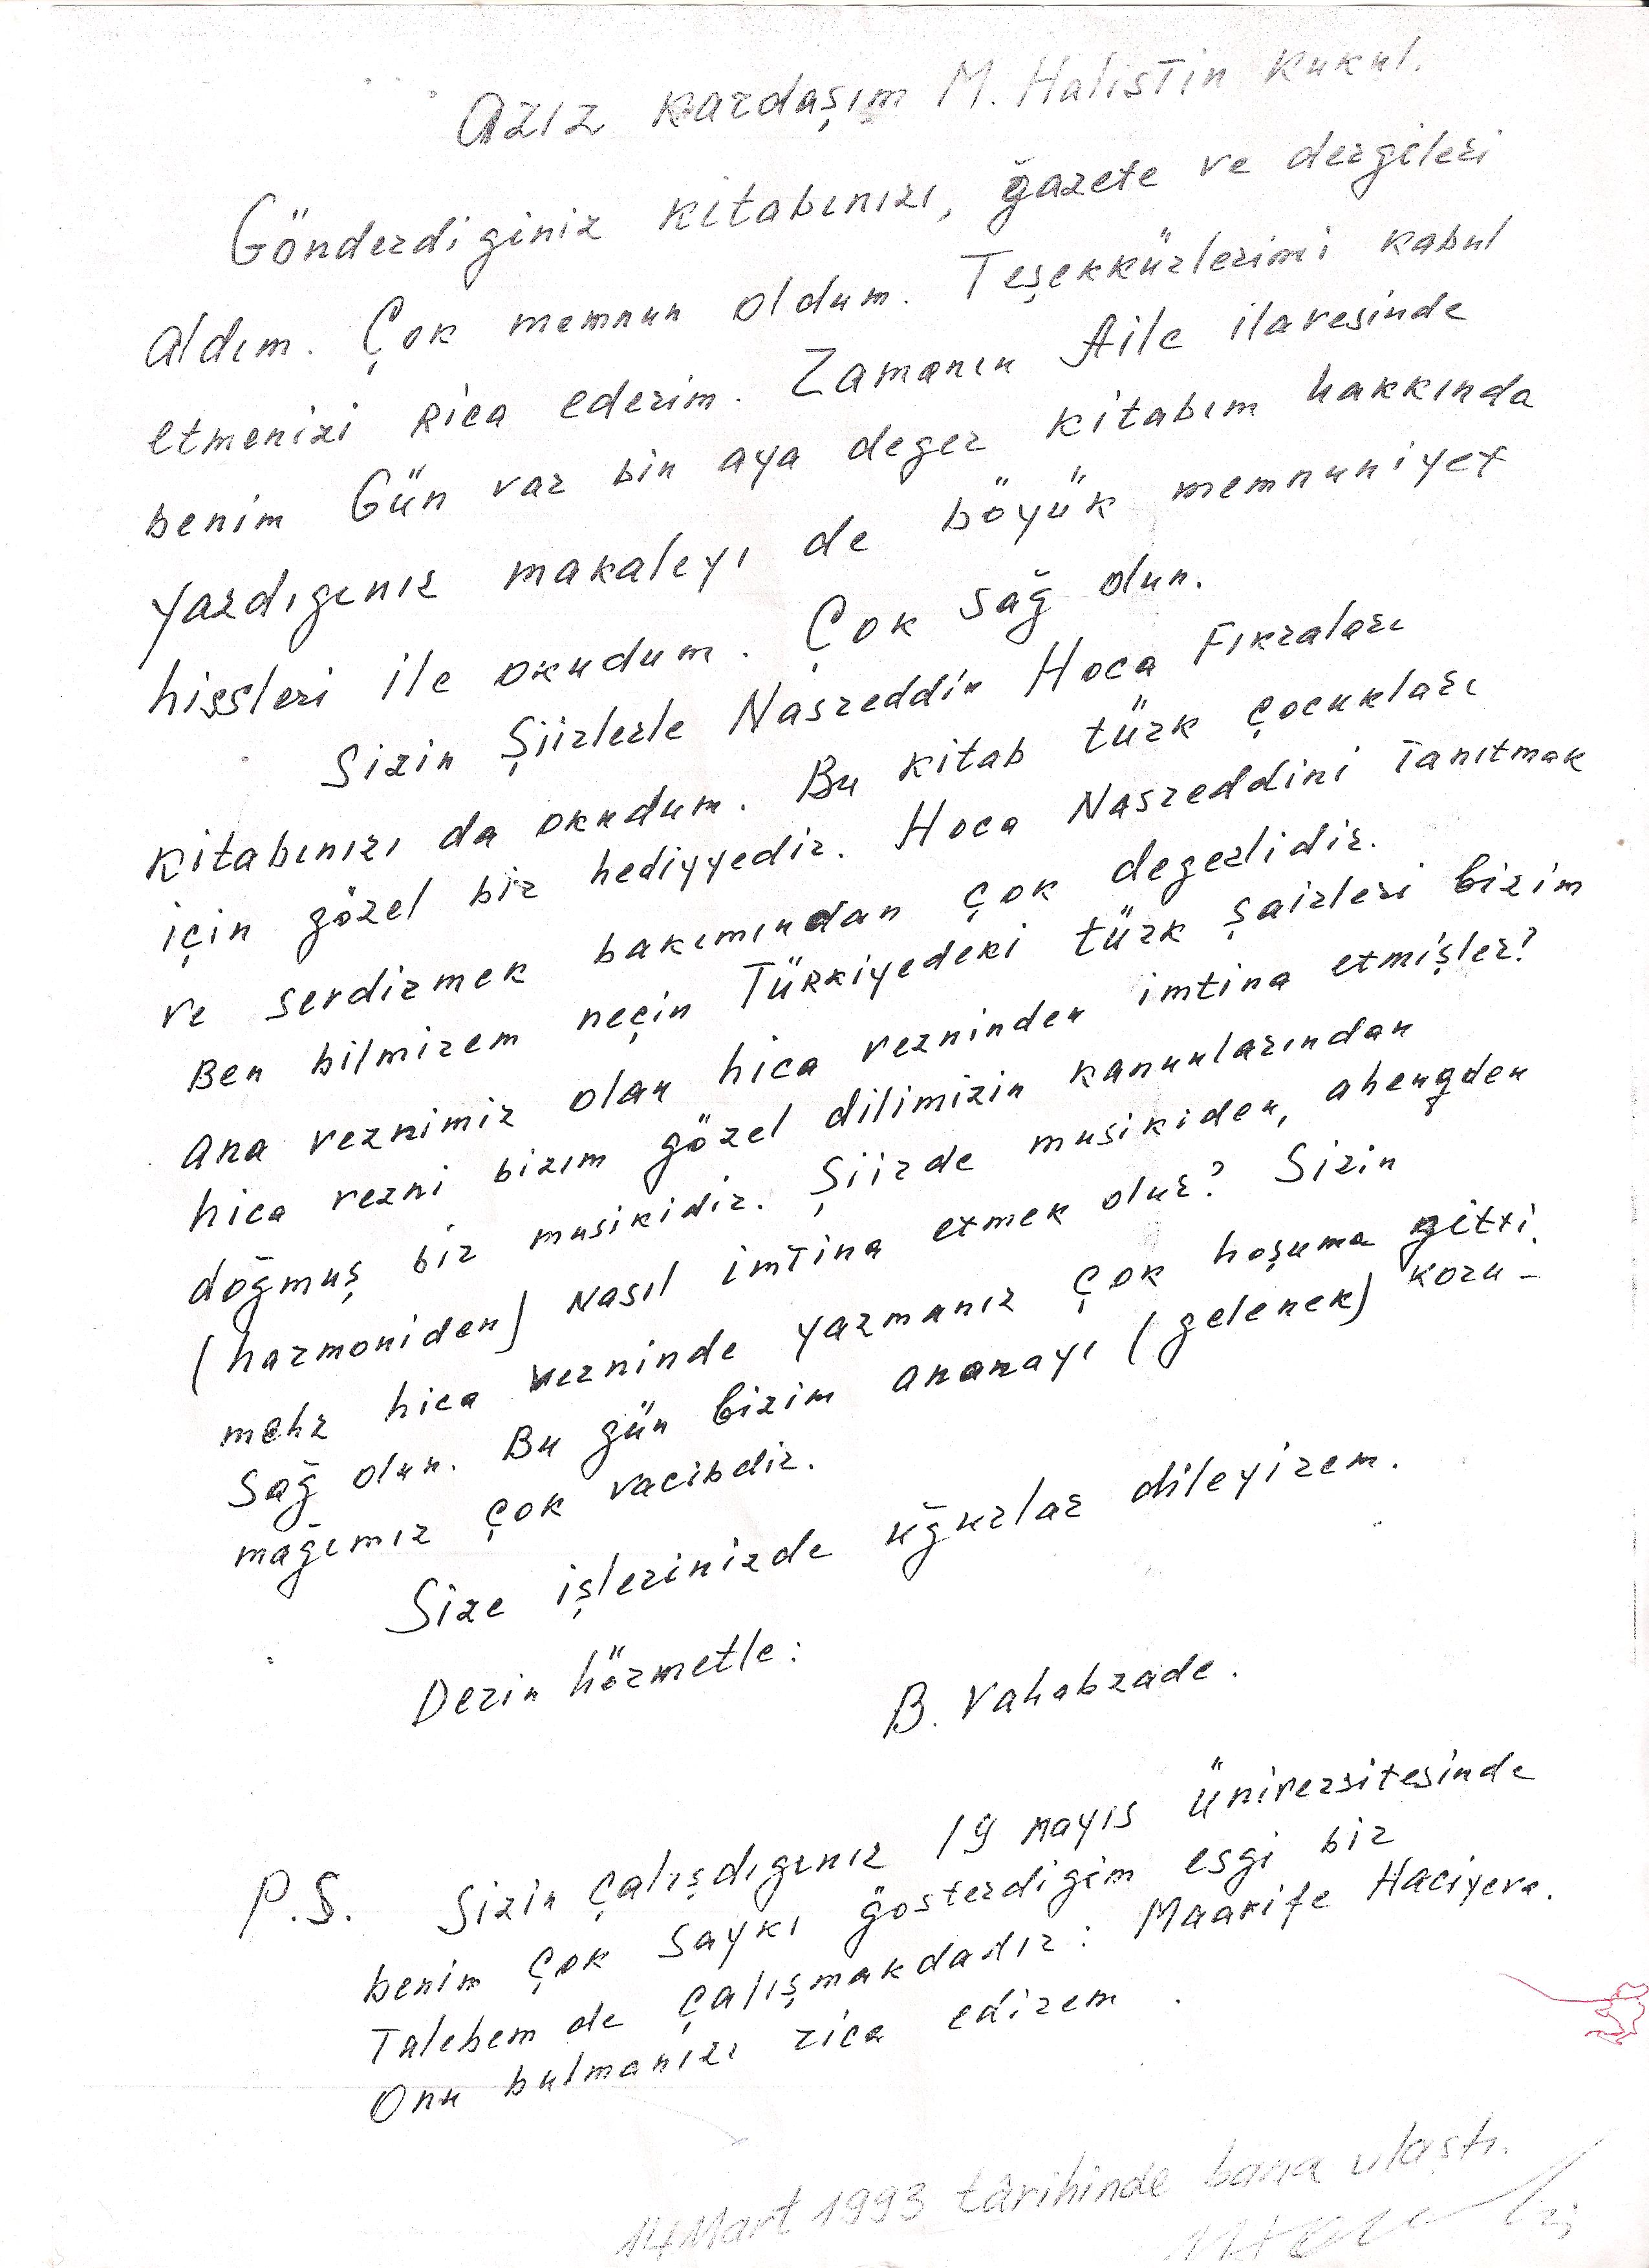 Azız kardaşım M. Halistin Kukul.
Gönderdiginiz kitabınızı, ğazete ve dergileri
aldım. Çok memnun oldum. Teşekkürlerimi kabul
etmenizi Rica ederim. Zamanın Aile ilavesinde
benim Gün var bin aya deger kitabım hakkında
yazdıgınız makaleyı de böyük memnuniyet
hissleri ile okudum. Çok sağ olun.
Sizin Şiirlerle Nasreddin Hoca Fıkraları
kitabınızı da okudum. Bu kitab türk çocukları
için gözel bir hediyyedir. Hoca Nasreddini Tanıtmak
ve sevdirmek bakımından çok degerlidir.
Ben bilmirem neçin Türkiyedeki türk şairleri bizim
ana veznimiz olan hica vezninden imtina etmişler?
hica vezni bizım gözel dilimizin kanunlarından
doğmuş bir musikidir. Şiirde musikiden, ahengden
(harmoniden) Nasıl imtina etmek olur? Sizin
mehz hica vezninde yazmanız çok hoşuma gitti.
Sağ olun. Bu gün bizim ananayı (gelenek) koru-
mağımız çok vacibdir.
Size işlerinizde uğurlar dileyirem.
Derin hörmetle:
B. Vahabzade.
P.S. Sizin çalışdıgınız 19 Mayıs üniversitesinde
benim çok saykı ğosterdigim esgi bir
Talebem de çalışmakdadır: Maarife Haciyeva.
Onu bulmanızı rica edirem.
14 Mart 1993 târihinde bana ulaştı.